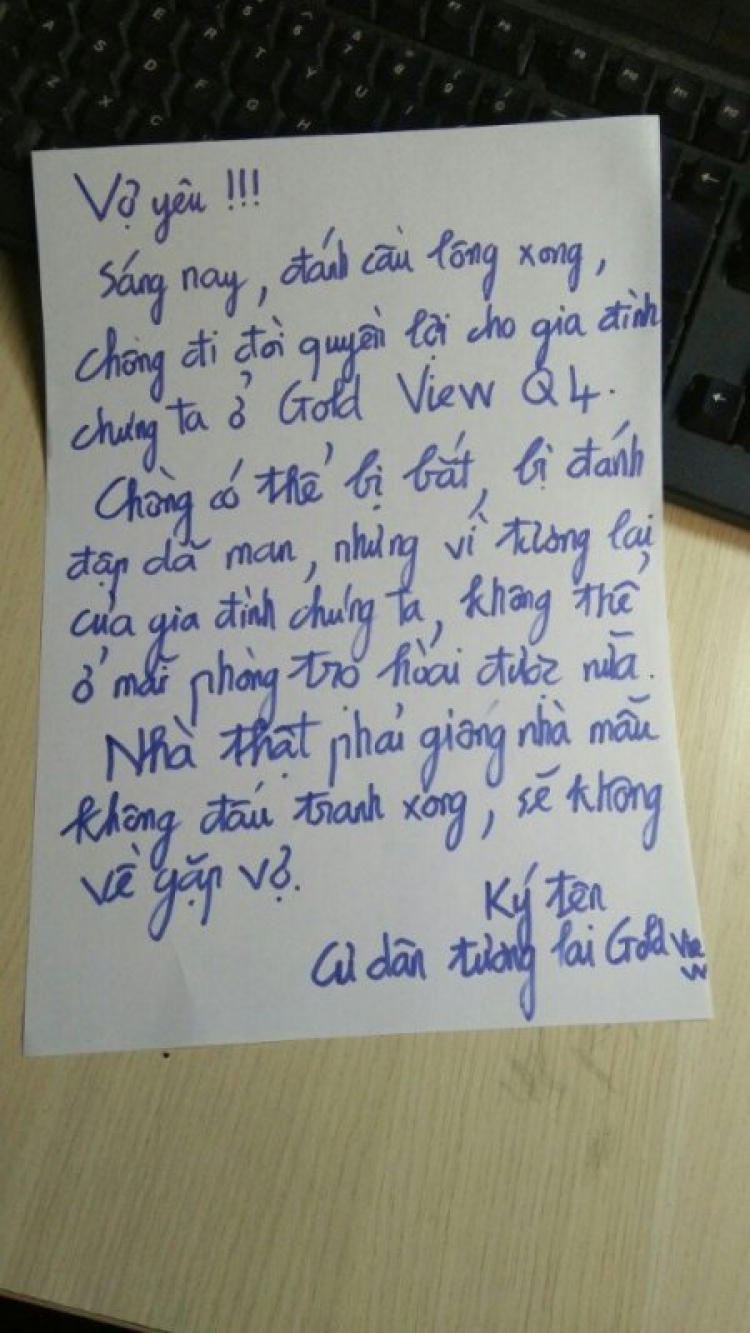 Vợ yêu !!!
Sáng nay, đánh cầu lông xong,
chồng đi đòi quyền lợi cho gia đình
chúng ta ở Gold View Q4.
Chồng có thể bị bắt, bị đánh
đập dã man, nhưng vì tương lai
của gia đình chúng ta, không thể
ở mãi phòng trọ hoài được nữa.
Nhà thật phải giống nhà mẫu
không đấu tranh xong, sẽ không
về gặp vợ.
Ký tên
Cư dân tương lai Gold View